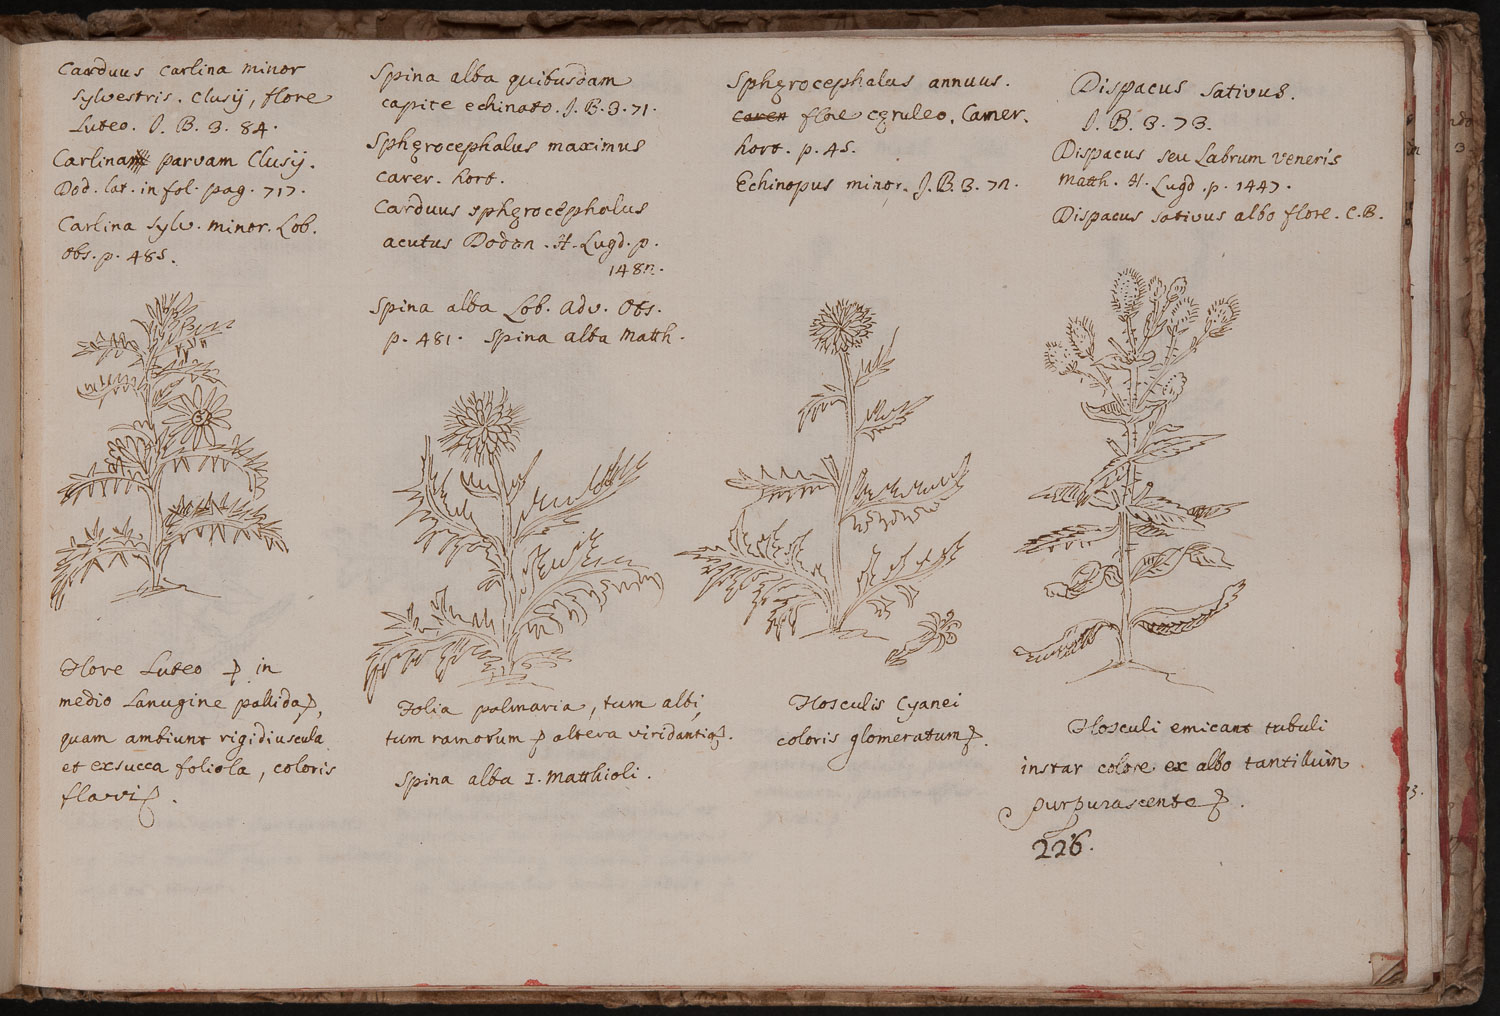 Carduus carlina minor
sylvestris. Clusij, flore
Luteo. J. B. 3. 84.
Carlina parvam Clusij.
Dod. lat. in fol. pag. 717.
Carlina sylv. minor. Lob.
Obs. p. 485.
Flore Luteo in
medio Lanugine pallida,
quam ambiunt rigidiuscula
et exsucca foliola, coloris
flavi.
Spina alba quibusdam
capite echinato. J. B. 3. 71.
Sphęrocephalus maximus
carer. hort.
Carduus sphęrocephalus
acutus Dodon. H. Lugd. p.
Spina alba Lob. Adv. Obs.
p. 481. Spina alba Matth.
Folia palmaria, tum albi,
tum ramorum altera viridantia.
Spina alba I. Matthioli.
Sphęrocephalus annuus.
flore cęruleo. Camer.
hort. p. 45.
Echinopus minor. J. B. 3. 72.
Flosculis Cyanei
coloris glomeratum.
Dispacus sativus.
J. B. 3. 73.
Dispacus seu Labrum veneris
Matth. H. Lugd. p. 1447.
Dispacus sativus albo flore. C. B.
Flosculi emicant tubuli
instar colore ex albo tantillùm
purpurascente.
226.